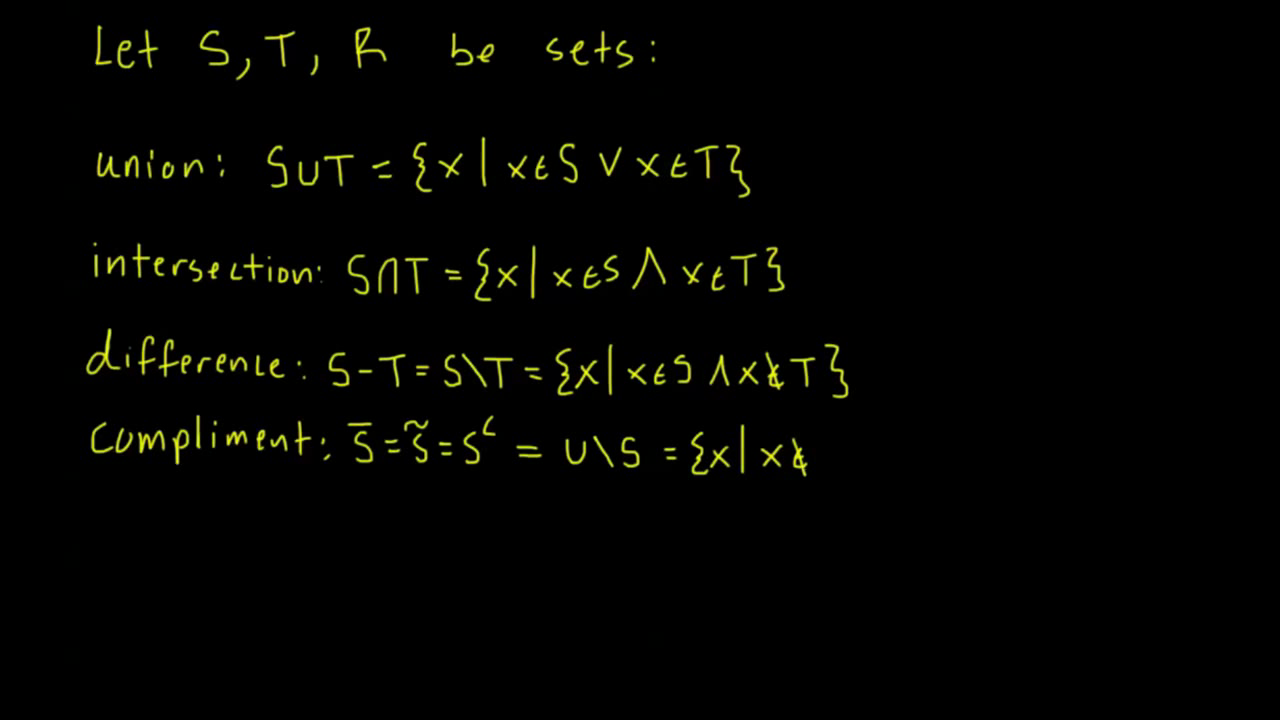 Let S, T, R be sets:
union: S∪T = {x | x∈S ∨ x∈T}
intersection: S∩T = {x | x∈S ∧ x∈T}
difference: S-T = S\T = {x | x∈S ∧ x∉T}
compliment: S̅ = S̃ = Sᶜ = U\S = {x | x∉